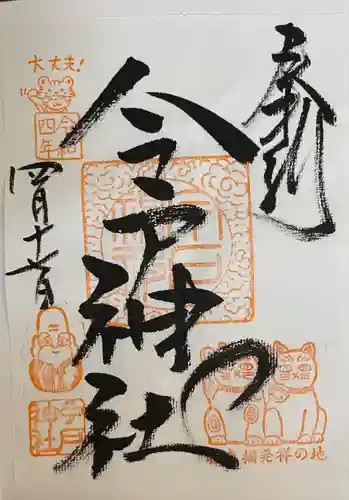 奉拝
今戸神社
大丈夫!
令和
四年
四月十一日
今戸
神社
猫発祥の地